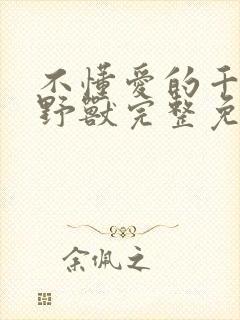 不懂愛的千
野獸完整免
余佩之